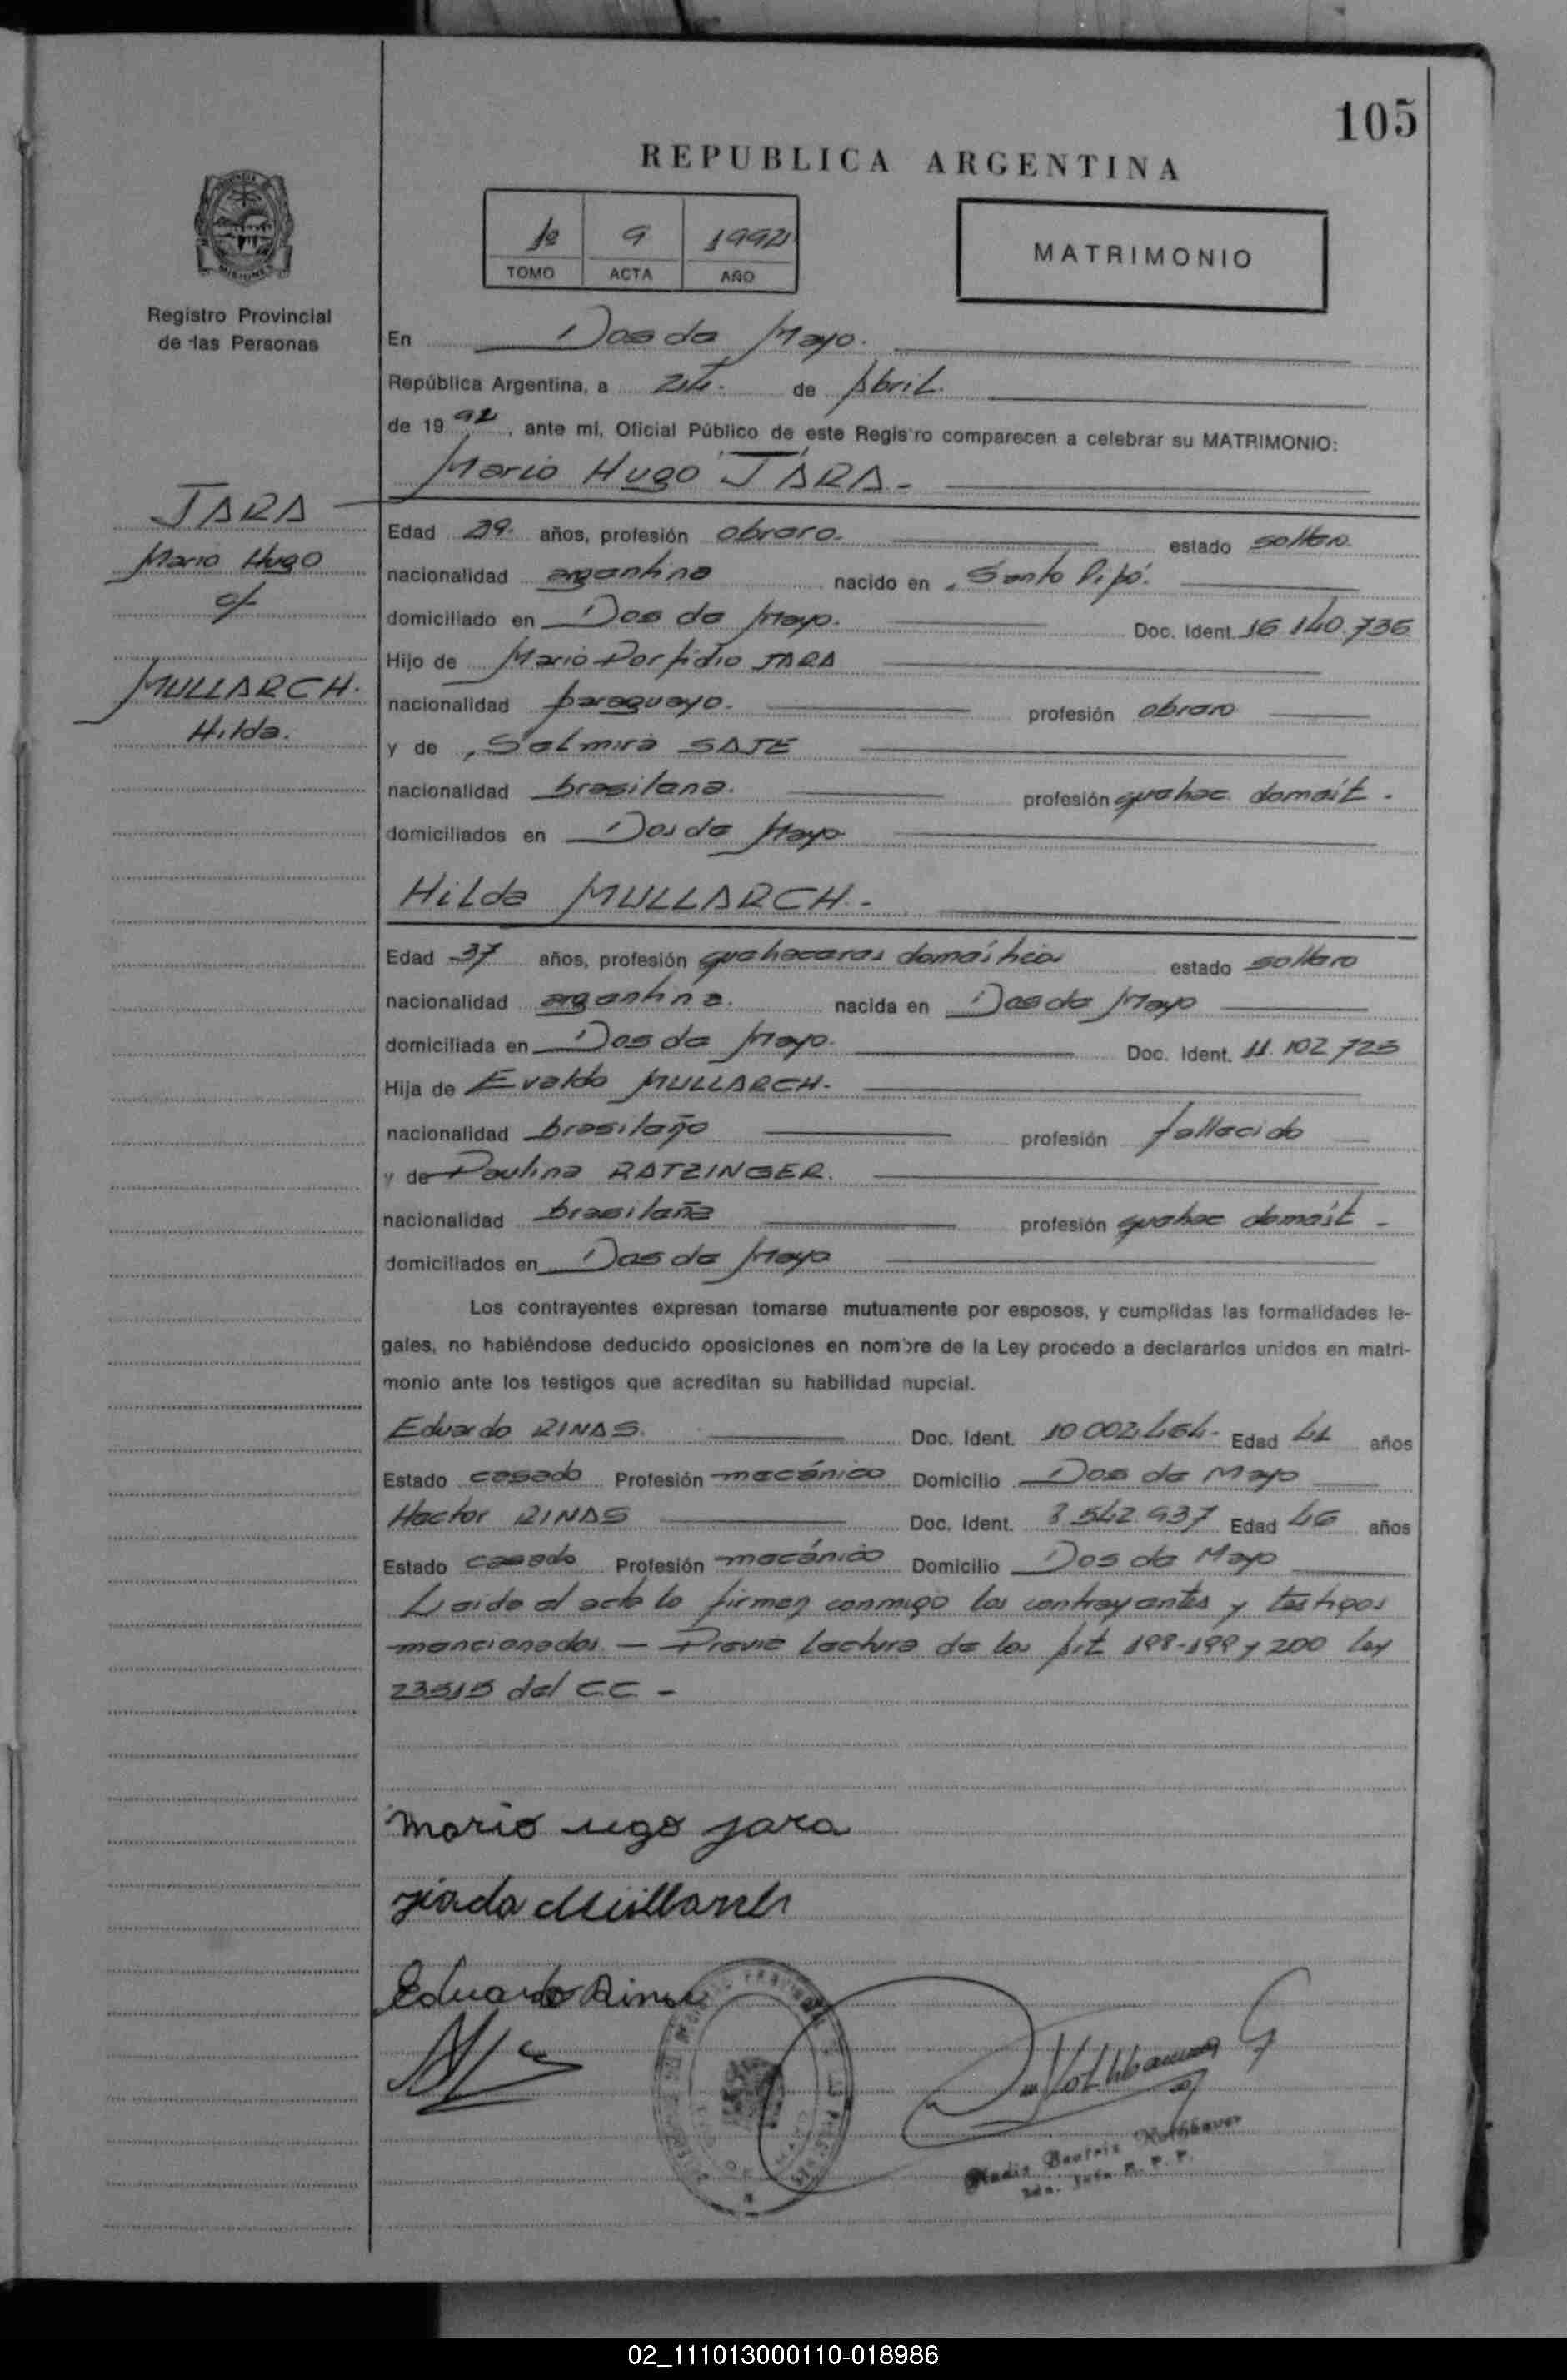 105
REPUBLICA ARGENTINA
1º 9 1992
TOMO ACTA AÑO
MATRIMONIO
MISIONES
Registro Provincial
de las Personas
En Dos de Mayo.
República Argentina, a 24. de Abril.
de 1992, ante mi, Oficial Público de este Registro comparecen a celebrar su MATRIMONIO:
Mario Hugo JARA.-
JARA
Mario Hugo
c/
MULLARCH.
Hilda.
Edad 29. años, profesión obrero. estado soltero.
nacionalidad argentino nacido en Santo Pipó.
domiciliado en Dos de Mayo. Doc. Ident. 16.140.736
Hijo de Mario Porfidio JARA
nacionalidad paraguayo. profesión obrero
y de Selmira SAJE
nacionalidad brasilena. profesión quehac. domést.-
domiciliados en Dos de Mayo
Hilda MULLARCH.-
Edad 37 años, profesión quehaceres domésticos estado soltera
nacionalidad argentina. nacida en Dos de Mayo
domiciliada en Dos de Mayo. Doc. Ident. 11.102.725
Hija de Evaldo MULLARCH.-
nacionalidad brasileño profesión fallecido
y de Paulina RATZINGER.
nacionalidad brasileña profesión quehac domést.-
domiciliados en Dos de Mayo
Los contrayentes expresan tomarse mutuamente por esposos, y cumplidas las formalidades le-
gales, no habiéndose deducido oposiciones en nombre de la Ley procedo a declararlos unidos en matri-
monio ante los testigos que acreditan su habilidad nupcial.
Eduardo RINAS. Doc. Ident. 10.002.464.- Edad 41 años
Estado casado Profesión mecánico Domicilio Dos de Mayo
Hector RINAS Doc. Ident. 8.542.937 Edad 46 años
Estado casado Profesión mecánico Domicilio Dos de Mayo
Leida el acta lo firman conmigo los contrayentes y testigos
mencionados.- Previa lectura de los Art 198-199 y 200 ley
23515 del C.C.-
Mario ugo jara
Mullarch
Eduardo Rinas
Beatriz
R. P. P.
02_111013000110-018986